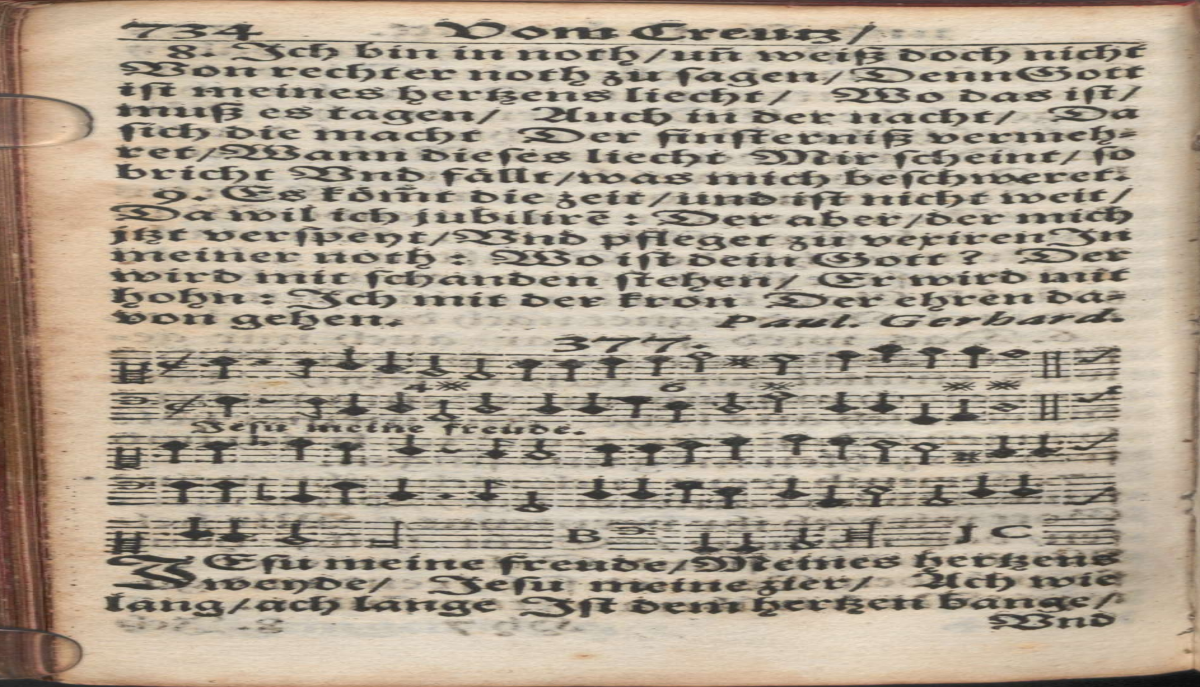 734 Vom Creutz/
8. Ich bin in noth/uñ weiß doch nicht
Von rechter noth zu sagen/Denn Gott
ist meines hertzens liecht/ Wo das ist/
muß es tagen/ Auch in der nacht/ Da
sich die macht Der finsterniß vermeh-
ret/Wann dieses liecht Mir scheint/so
bricht Vnd fällt/was mich beschweret.
9. Es kömt die zeit/und ist nicht weit/
Da wil ich jubilirẽ: Der aber/der mich
jtzt verspeyt/Vnd pfleget zu vexiren In
meiner noth: Wo ist dein Gott? Der
wird mit schanden stehen/ Er wird mit
hohn: Ich mit der kron Der ehren da-
von gehen. Paul. Gerhard.
377.
4 6
Jesu meine freude.
B J C
JEsu meine freude/Meines hertzens
weyde/ Jesu meine zier/ Ach wie
lang/ach lange Ist dem hertzen bange/
Vnd